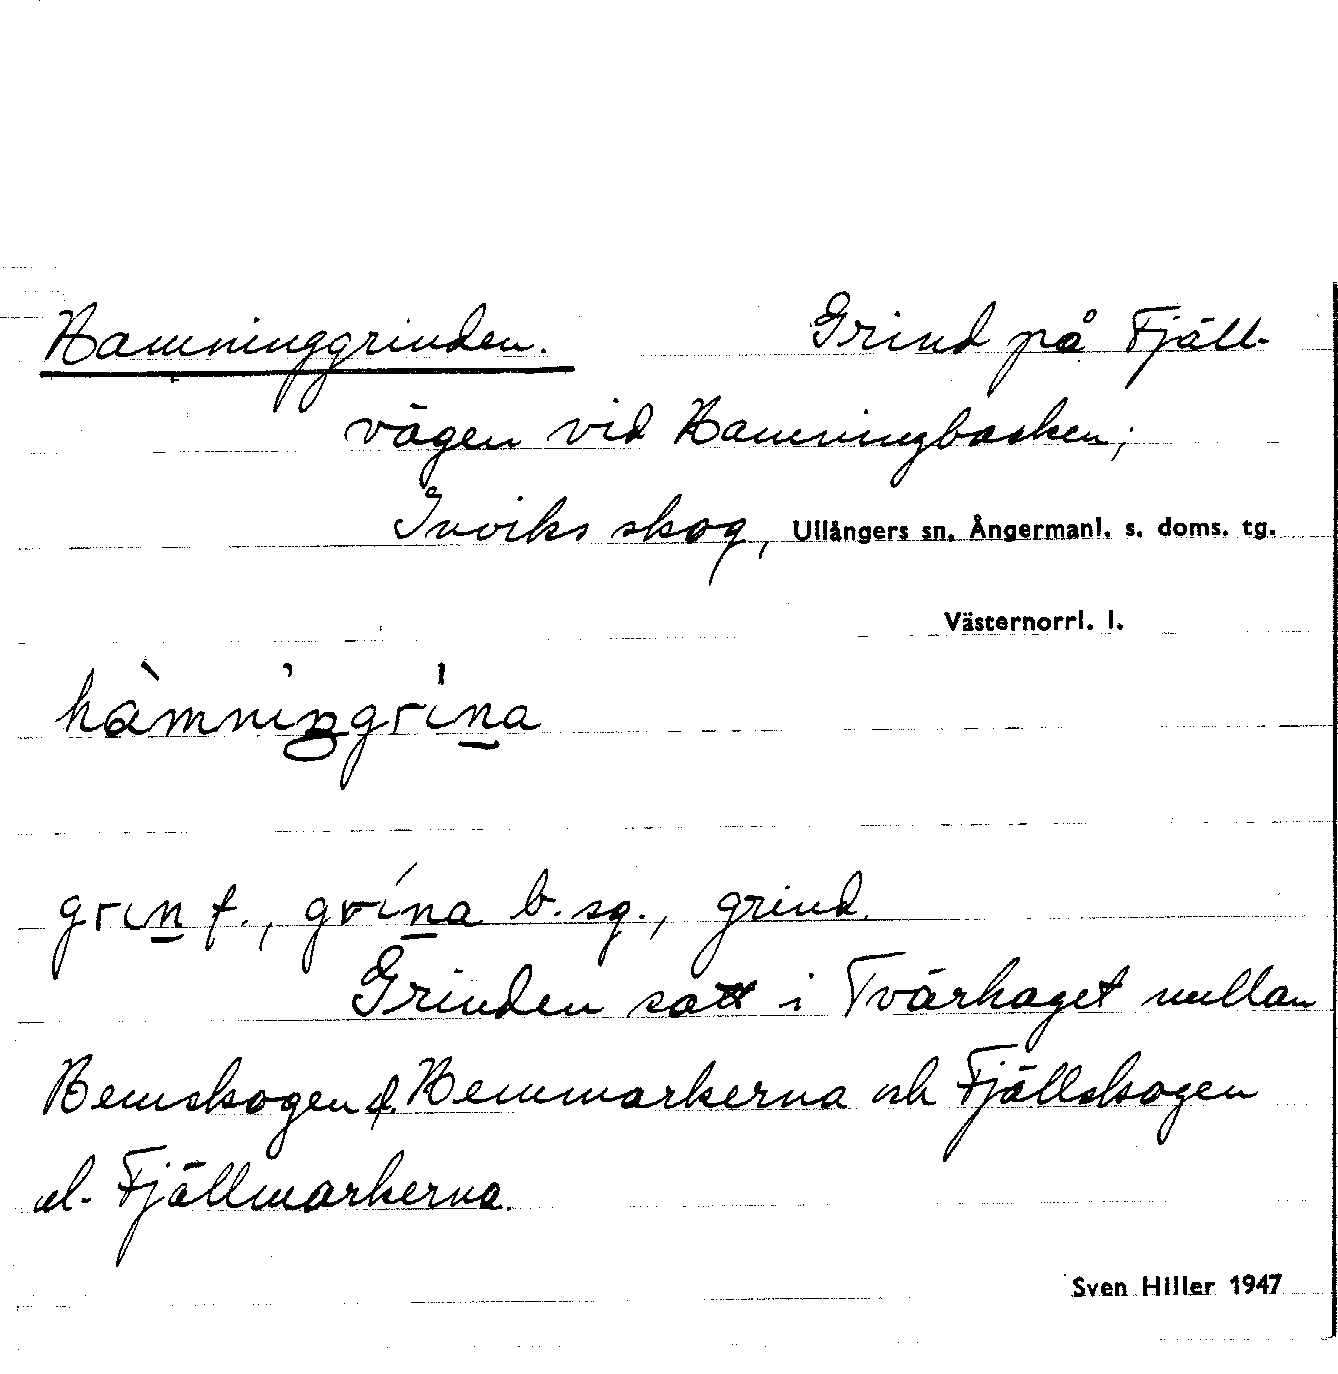 Hamninggrinden. Grind på Fjäll-
vägen vid Hamningbacken;
Inviks skog, Ullångers sn. Ångermanl. s. doms. tg.
Västernorrl. l.
hàmningrìna
grin f., grína b. sg., grind.
Grinden satt i Tvärhaget mellan
Hemskogen & Hemmarkerna och Fjällskogen
el. Fjällmarkerna.
Sven Hiller 1947